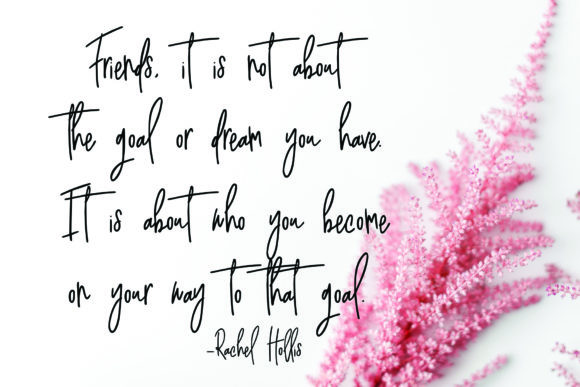 Friends, it is not about
the goal or dream you have.
It is about who you become
on your way to that goal.
-Rachel Hollis